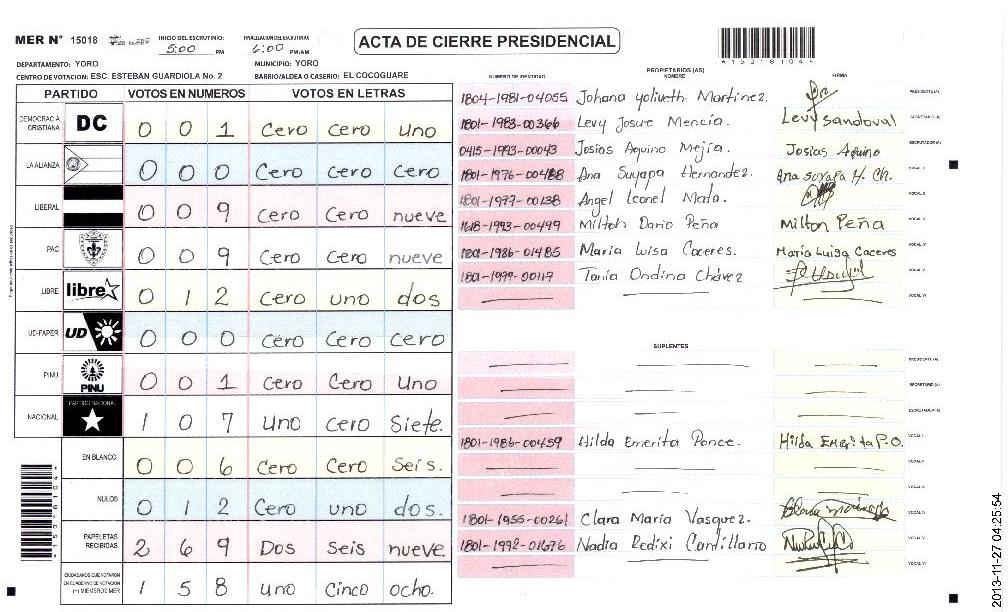 MER N° 15018
INICIO DEL ESCRUTINIO: 5:00 PM
FINALIZACION ESCRUTINIO: 6:00 PM/AM
ACTA DE CIERRE PRESIDENCIAL
*15018104*
DEPARTAMENTO: YORO
MUNICIPIO: YORO
CENTRO DE VOTACION: ESC. ESTEBAN GUARDIOLA No. 2
BARRIO/ALDEA O CASERIO: EL COCOGUARE
PARTIDO VOTOS EN NUMEROS VOTOS EN LETRAS
DEMOCRACIA CRISTIANA DC 0 0 1 Cero cero uno
LA ALIANZA 0 0 0 Cero cero cero
LIBERAL 0 0 9 Cero Cero nueve
PAC 0 0 9 Cero Cero nueve
LIBRE libre 0 1 2 Cero uno dos
UD-FAPER UD 0 0 0 Cero Cero cero
PINU PINU 0 0 1 Cero Cero Uno
NACIONAL PARTIDO NACIONAL 1 0 7 Uno cero Siete.
EN BLANCO 0 0 6 Cero Cero Seis.
NULOS 0 1 2 Cero uno dos.
PAPELETAS RECIBIDAS 2 6 9 Dos Seis nueve.
CIUDADANOS QUE VOTARON EN CUADERNO DE VOTACION (+) MIEMBROS MER 1 5 8 uno Cinco ocho.
NUMERO DE IDENTIDAD PROPIETARIOS (AS) NOMBRE FIRMA
1804-1981-04055 Johana yolibeth Martinez. PRESIDENTE(A)
1801-1983-00366 Levy Josue Mencia. Levy Sandoval SECRETARIO (A)
0415-1993-00043 Josias Aquino Mejia. Josias Aquino ESCRUTADOR (A)
1801-1976-00488 Ana Suyapa Hernandez. Ana suyapa H. Ch. VOCAL I
1801-1977-00138 Angel Leonel Mata. VOCAL II
1618-1993-00499 Milton Dario Peña Milton Peña VOCAL III
1801-1986-01485 Maria Luisa Caceres. Maria Luisa Caceres VOCAL IV
1801-1999-00117 Tania Ondina Chávez VOCAL V
VOCAL VI
SUPLENTES
PRESIDENTE (A)
SECRETARIO (A)
ESCRUTADOR(A)
1801-1986-00459 Hilda Emerita Ponce. Hilda Emerita P.O. VOCAL I
VOCAL II
VOCAL III
1801-1955-00261 Clara Maria Vasquez. VOCAL IV
1801-1992-01676 Nadia Redixi Cantillano VOCAL V
VOCAL VI
2013-11-27 04:25:54